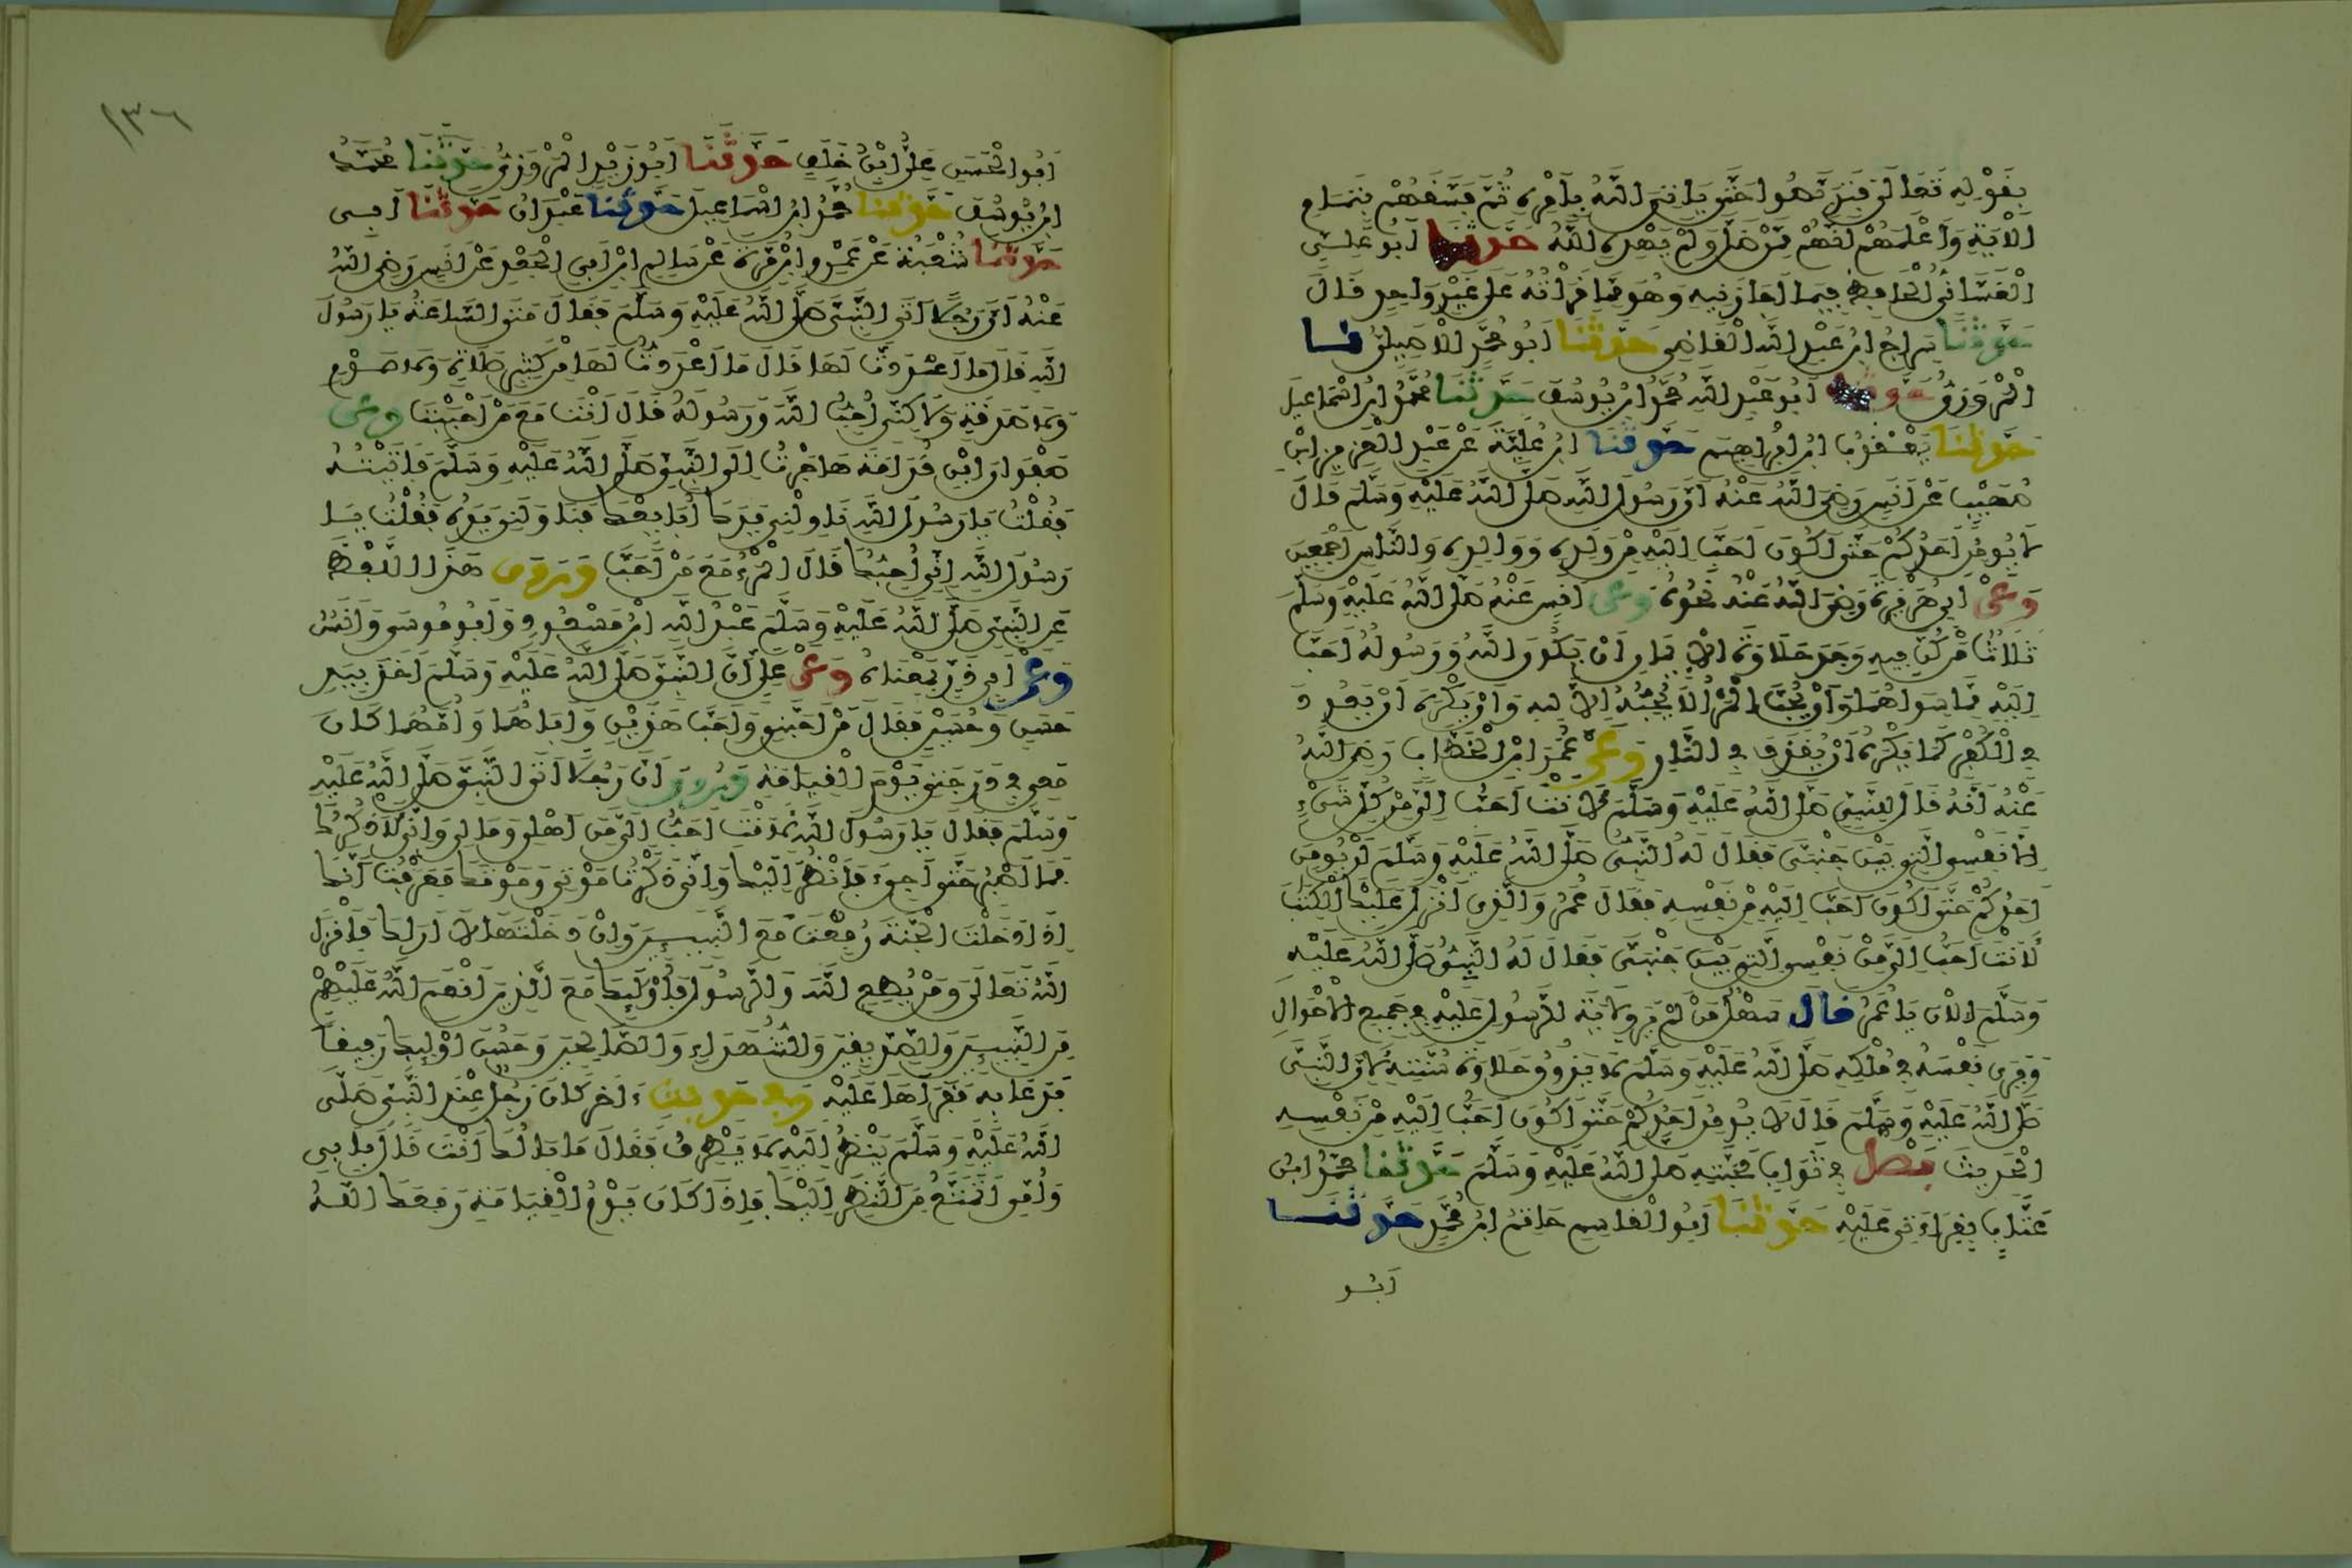 بقوله تعالى فتربصوا حتى ياتي الله بامره ثم فسقهم بتمام
الاية واعلمهم انهم ممن ضل ولم يهده الله حدثنا ابو علي
الغساني الحافظ فيما اجازنيه وهو مما قراته على غير واحد قال
حدثنا سراج ابن عبد الله القاضي حدثنا ابو محمد الاصيلي نا
المروزي حدثنا ابو عبد الله محمد ابن يوسف حدثنا محمد ابن اسماعيل
حدثنا يعقوب ابن ابراهيم حدثنا ابن علية عن عبد العزيز ابن
صهيب عن انس رضي الله عنه ان رسول الله صلى الله عليه وسلم قال
لا يومن احدكم حتى اكون احب اليه من ولده ووالده والناس اجمعين
وعن ابي هريرة رضي الله عنه نحوه وعن انس عنه صلى الله عليه وسلم
ثلاث من كن فيه وجد حلاوة الايمان ان يكون الله ورسوله احب
اليه مما سواهما وان يحب المرء لا يحبه الا لله وان يكره ان يعود
في الكفر كما يكره ان يقذف في النار وعن عمر ابن الخطاب رضي الله
عنه انه قال للنبي صلى الله عليه وسلم لانت احب الي من كل شيء
الا نفسي التي بين جنبي فقال له النبي صلى الله عليه وسلم لن يومن
احدكم حتى اكون احب اليه من نفسه فقال عمر والذي انزل عليك الكتاب
لانت احب الي من نفسي التي بين جنبي فقال له النبي صلى الله عليه
وسلم الان يا عمر قال سهل من لم ير ولاية الرسول عليه في جميع الاحوال
ويرى نفسه في ملكه صلى الله عليه وسلم لا يذوق حلاوة سنته لان النبي
صلى الله عليه وسلم قال لا يومن احدكم حتى اكون احب اليه من نفسه
الحديث فصل في ثواب محبته صلى الله عليه وسلم حدثنا محمد ابن
عتاب بقراءتي عليه حدثنا ابو القاسم حاتم ابن محمد حدثنا
ابو
١٣٦
ابو الحسن علي ابن خلف حدثنا ابو زيد المروزي حدثنا محمد
ابن يوسف حدثنا محمد ابن اسماعيل حدثنا عبدان حدثنا ابي
حدثنا شعبة عن عمرو ابن مرة عن سالم ابن ابي الجعد عن انس رضي الله
عنه ان رجلا اتى النبي صلى الله عليه وسلم فقال متى الساعة يا رسول
الله قال ما اعددت لها قال ما اعددت لها من كثير صلاة ولا صوم
ولا صدقة ولاكني احب الله ورسوله قال انت مع من احببت وعن
صفوان ابن قدامة هاجرت الى النبي صلى الله عليه وسلم فاتيته
فقلت يا رسول الله ناولني يدك ابايعك فناولني يده فقلت يا
رسول الله اني احبك قال المرء مع من احب وروى هذا اللفظ
عن النبي صلى الله عليه وسلم عبد الله ابن مسعود وابو موسى وانس
وعن ابي ذر بمعناه وعن علي ان النبي صلى الله عليه وسلم اخذ بيد
حسن وحسين فقال من احبني واحب هذين واباهما وامهما كان
معي في درجتي يوم القيامة وروي ان رجلا اتى النبي صلى الله عليه
وسلم فقال يا رسول الله لانت احب الي من اهلي ومالي واني لاذكرك
فما اصبر حتى اجيء فانظر اليك واني ذكرت موتي وموتك فعرفت انك
اذا دخلت الجنة رفعت مع النبيين وان دخلتها لا اراك فانزل
الله تعالى ومن يطع الله والرسول فاوليك مع الذين انعم الله عليهم
من النبيين والصديقين والشهداء والصالحين وحسن اوليك رفيقا
فدعا به فقراها عليه وفي حديث ءاخر كان رجل عند النبي صلى
الله عليه وسلم ينظر اليه لا يطرف فقال ما بالك انت قال بابي
وامي اتمتع من النظر اليك فاذا كان يوم القيامة رفعك الله